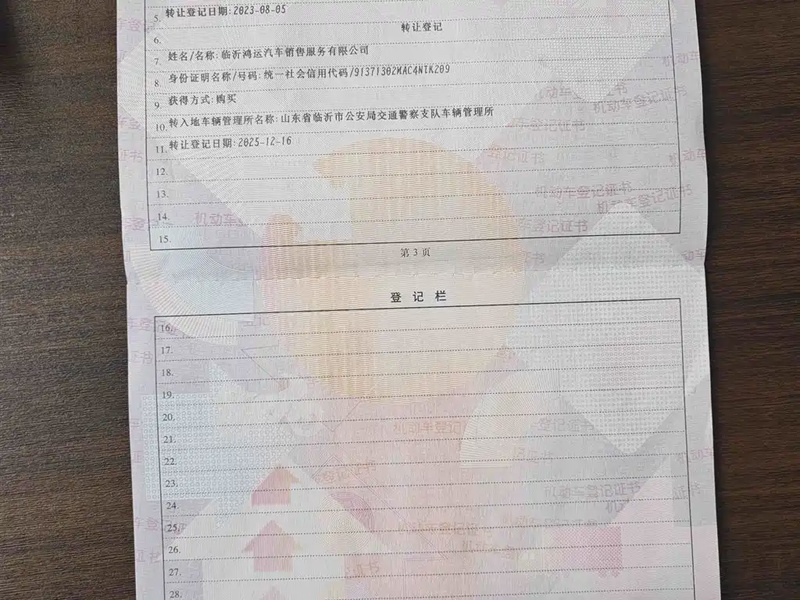 5. 转让登记日期:2023-08-05
6. 转让登记
7. 姓名/名称:临沂鸿运汽车销售服务有限公司
8. 身份证明名称/号码:统一社会信用代码/91371302MAC4N1K209
9. 获得方式:购买
10. 转入地车辆管理所名称:山东省临沂市公安局交通警察支队车辆管理所
11. 转让登记日期:2025-12-16
12.
13.
14.
15.
第3页
登记栏
16.
17.
18.
19.
20.
21.
22.
23.
24.
25.
26.
27.
28.